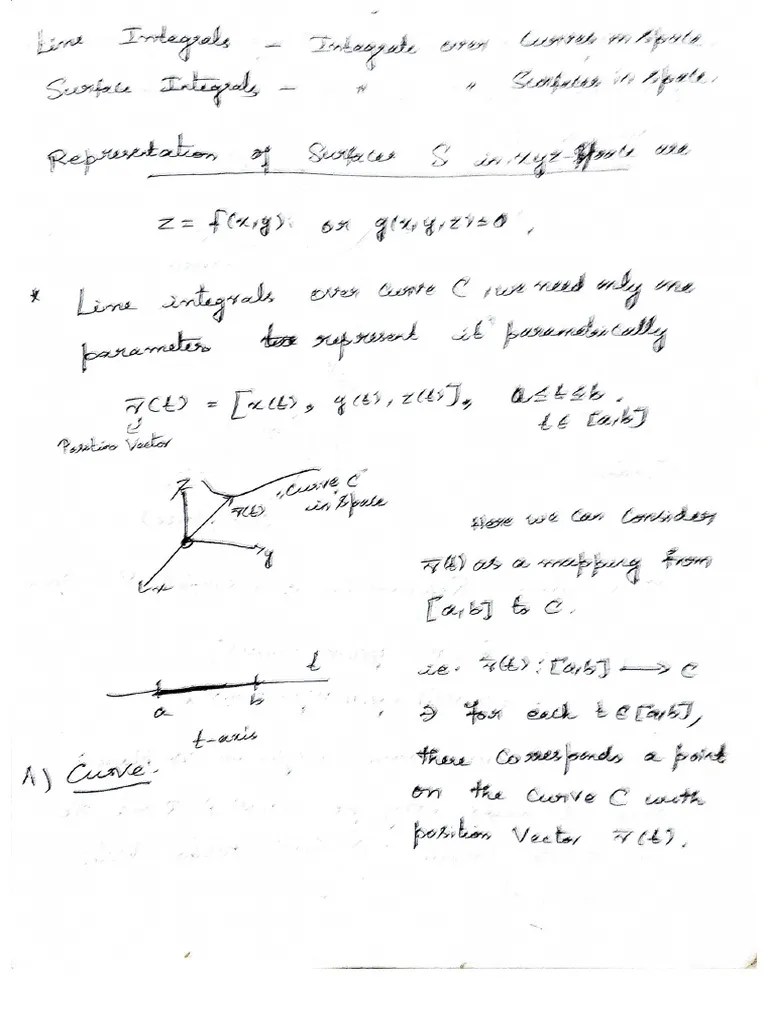 Line Integrals - Integrate over curves in space
Surface Integrals - " " Surfaces in space.
Representation of Surfaces S in xyz-space are
z = f(x,y) or g(x,y,z)=0,
* Line integrals over curve C, we need only one
parameter to represent it parametrically
r̄(t) = [x(t), y(t), z(t)], a≤t≤b.
t∈ [a,b]
Position Vector
z
r̄(t)
Curve C
in space
y
x
Here we can consider
r̄(t) as a mapping from
[a,b] to C.
i.e. r̄(t) : [a,b] → C
⇒ for each t ∈ [a,b],
there corresponds a point
on the curve C with
position Vector r̄(t).
t
a b
t-axis
A) Curve: